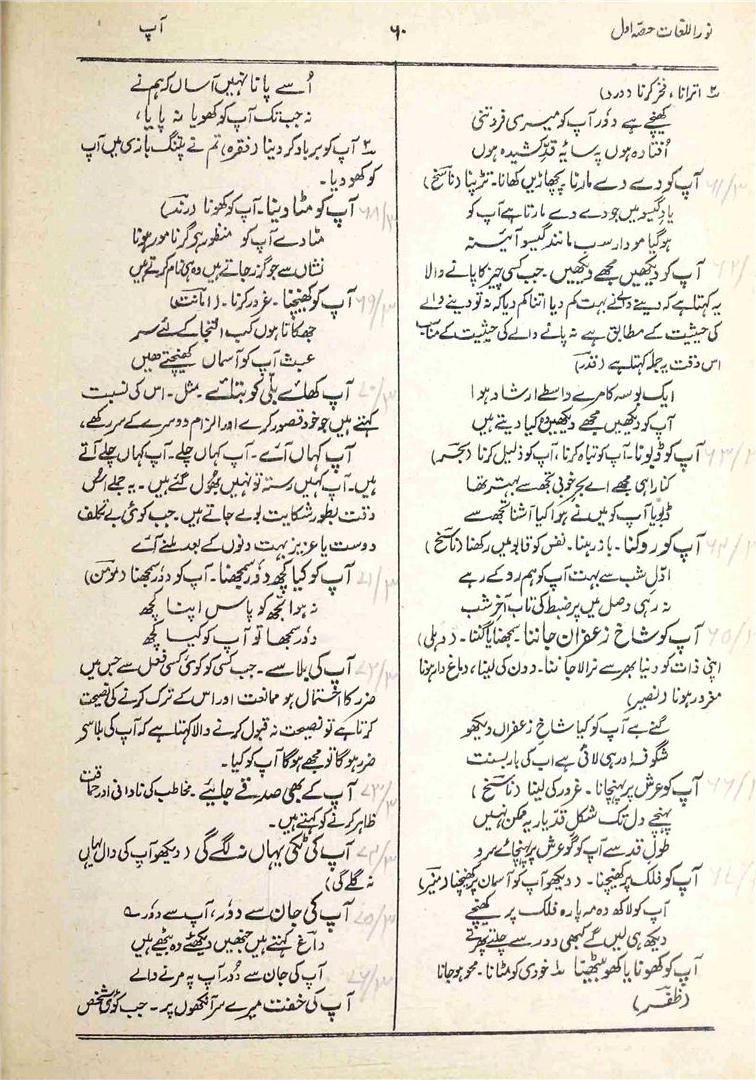 نور اللغات حصہ اول
۶۰
آپ
۲ اترانا، فخر کرنا (درد)
کھینچے ہے دور آپ کو میری فروتنی
افتادہ ہوں پر سایۂ قد کشیدہ ہوں
آپ کو دے دے مارنا پچھاڑیں کھانا۔ تڑپنا (ناسخ)
یاد گیسو میں جو دے دے مارتا ہے آپ کو
ہو گیا مودار سب مانند گیسو آئینہ
آپ کو دیکھیں مجھے دیکھیں۔ جب کسی چیز کا پانے والا
یہ کہتا ہے کہ دینے والے نے بہت کم دیا اتنا کم دیا کہ نہ تو دینے والے
کی حیثیت کے مطابق ہے نہ پانے والے کی حیثیت کے مناسب
اس وقت یہ جملہ کہتا ہے (قدر)
ایک بوسہ کا مرے واسطے ارشاد ہوا
آپ کو دیکھیں مجھے دیکھیں کیا دیتے ہیں
آپ کو ڈبونا۔ آپ کو تباہ کرنا، آپ کو ذلیل کرنا (بحر)
کنارا ہی مجھے اے بحر خوبی تجھ سے بہتر تھا
ڈبویا آپ کو میں نے ہوا کیا آشنا تجھ سے
آپ کو روکنا۔ باز رہنا۔ نفس کو قابو میں رکھنا (ناسخ)
اول شب سے بہت آپ کو ہم روکے رہے
نہ رہی وصل میں پر ضبط کی تاب آخر شب
آپ کو شاخ زعفران جاننا۔ سمجھنا یا گننا۔ (دہلی)
اپنی ذات کو دنیا بھر سے نرالا جاننا۔ دون کی لینا، دماغ دار ہونا
مغرور ہونا (نصیر)
گنے ہے آپ کو کیا شاخ زعفراں دیکھو
شگوفہ اور ہی لائی ہے اب کی بار بسنت
آپ کو عرش پر پہنچانا۔ غرور کی لینا (ناسخ)
پہنچے دل تک شکل قد یار یہ ممکن نہیں
طول قد سے آپ کو گو عرش پر پہنچائے سرو
آپ کو فلک پر کھینچنا۔ (دیکھو آپ کو آسمان پر کھینچنا) (منیر)
آپ کو لاکھ وہ مہ پارہ فلک پر کھینچے
دیکھ ہی لیں گے کبھی دور سے چلتے پھرتے
آپ کو کھونا یا کھو بیٹھنا ۱ خودی کو مٹانا۔ محو ہو جانا
(ظفر)
اُسے پانا نہیں آساں کہ ہم نے
نہ جب تک آپ کو کھویا نہ پایا،
۲ آپ کو برباد کر دینا (فقرہ) تم نے پتنگ بازی میں آپ
کو کھو دیا۔
آپ کو مٹا دینا۔ آپ کو کھونا (رند)
مٹا دے آپ کو منظور ہی گر نامور ہونا
نشاں سے جو گزر جاتے ہیں وہ ہی نام کرتے ہیں
آپ کو کھینچنا۔ غرور کرنا۔ (امانت)
جھکاتا ہوں کب التجا کے لئے سر
عبث آپ کو آسماں کھینچتے ہیں
آپ کھائے بلی کو بتائے۔ مثل۔ اس کی نسبت
کہتے ہیں جو خود قصور کرے اور الزام دوسرے کے سر رکھے،
آپ کہاں آئے۔ آپ کہاں چلے۔ آپ کہاں چلے آتے
ہیں۔ آپ کہیں رستہ تو نہیں بھول گئے ہیں۔ یہ جملے اس
وقت بطور شکایت بولے جاتے ہیں۔ جب کوئی بے تکلف
دوست یا عزیز بہت دنوں کے بعد ملنے آئے
آپ کو کیا کچھ دور سمجھنا۔ آپ کو دور سمجھنا (مومن)
نہ ہوا تجھ کو پاس اپنا کچھ
دور سمجھا تو آپ کو کیا کچھ
آپ کی بلا سے۔ جب کسی کو کوئی کسی فعل سے جس میں
ضرر کا احتمال ہو ممانعت اور اس کے ترک کرنے کی نصیحت
کرتا ہے تو نصیحت نہ قبول کرنے والا کہتا ہے کہ آپ کی بلا سی
ضرر ہو گا تو مجھے ہو گا آپ کو کیا۔
آپ کے بھی صدقے جائیے۔ مخاطب کی نادانی اور حماقت
ظاہر کرنے کو کہتے ہیں۔
آپ کی ٹکی یہاں نہ لگے گی (دیکھو آپ کی دال یہاں
نہ گلے گی)
آپ کی جان سے دور، آپ سے دور ے
داغ کہتے ہیں جنھیں دیکھئے وہ بیٹھے ہیں
آپ کی جان سے دور آپ پہ مرنے والے
آپ کی خفت میرے سر آنکھوں پر۔ جب کوئی شخص